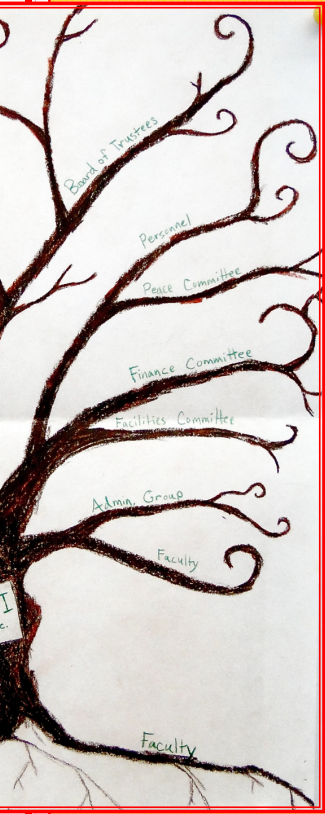 Board of Trustees
Personnel
Peace Committee
Finance Committee
Facilities Committee
Admin. Group
Faculty
I
c.
Faculty